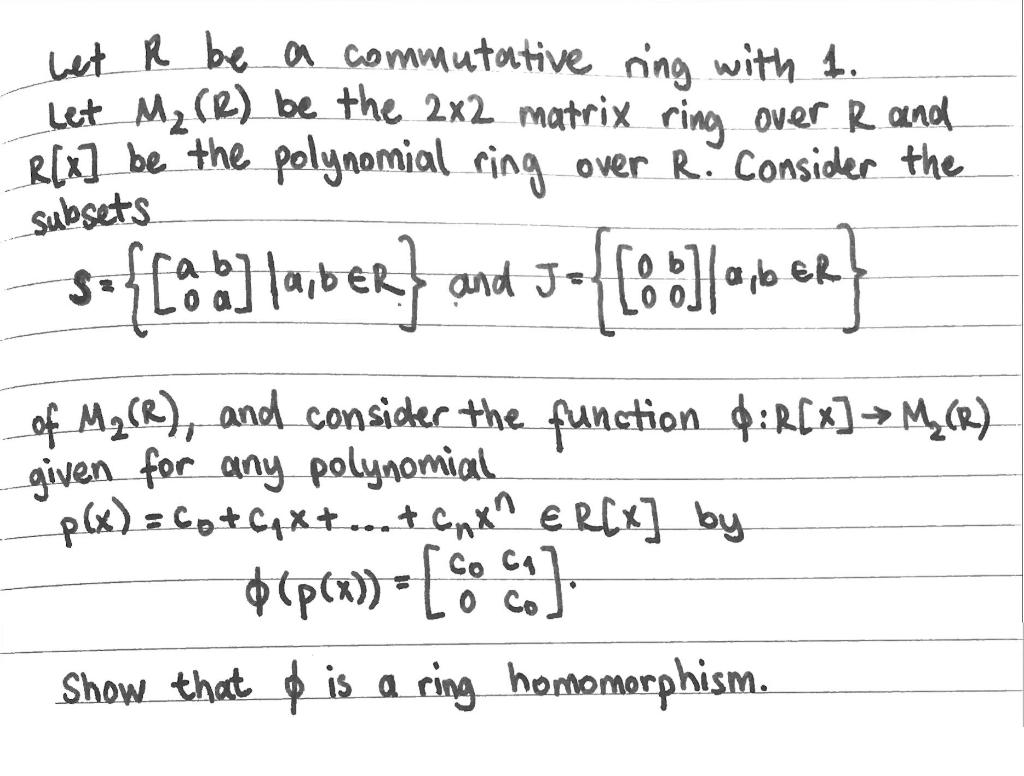 Let R be a commutative ring with 1.
Let M₂(R) be the 2x2 matrix ring over R and
R[x] be the polynomial ring over R. Consider the
subsets
S = {[a b; 0 a] | a,b ∈ R} and J = {[0 b; 0 0] | a,b ∈ R}
of M₂(R), and consider the function ϕ: R[x] → M₂(R)
given for any polynomial
p(x) = c₀ + c₁x + ... + cₙxⁿ ∈ R[x] by
ϕ(p(x)) = [c₀ c₁; 0 c₀].
Show that ϕ is a ring homomorphism.